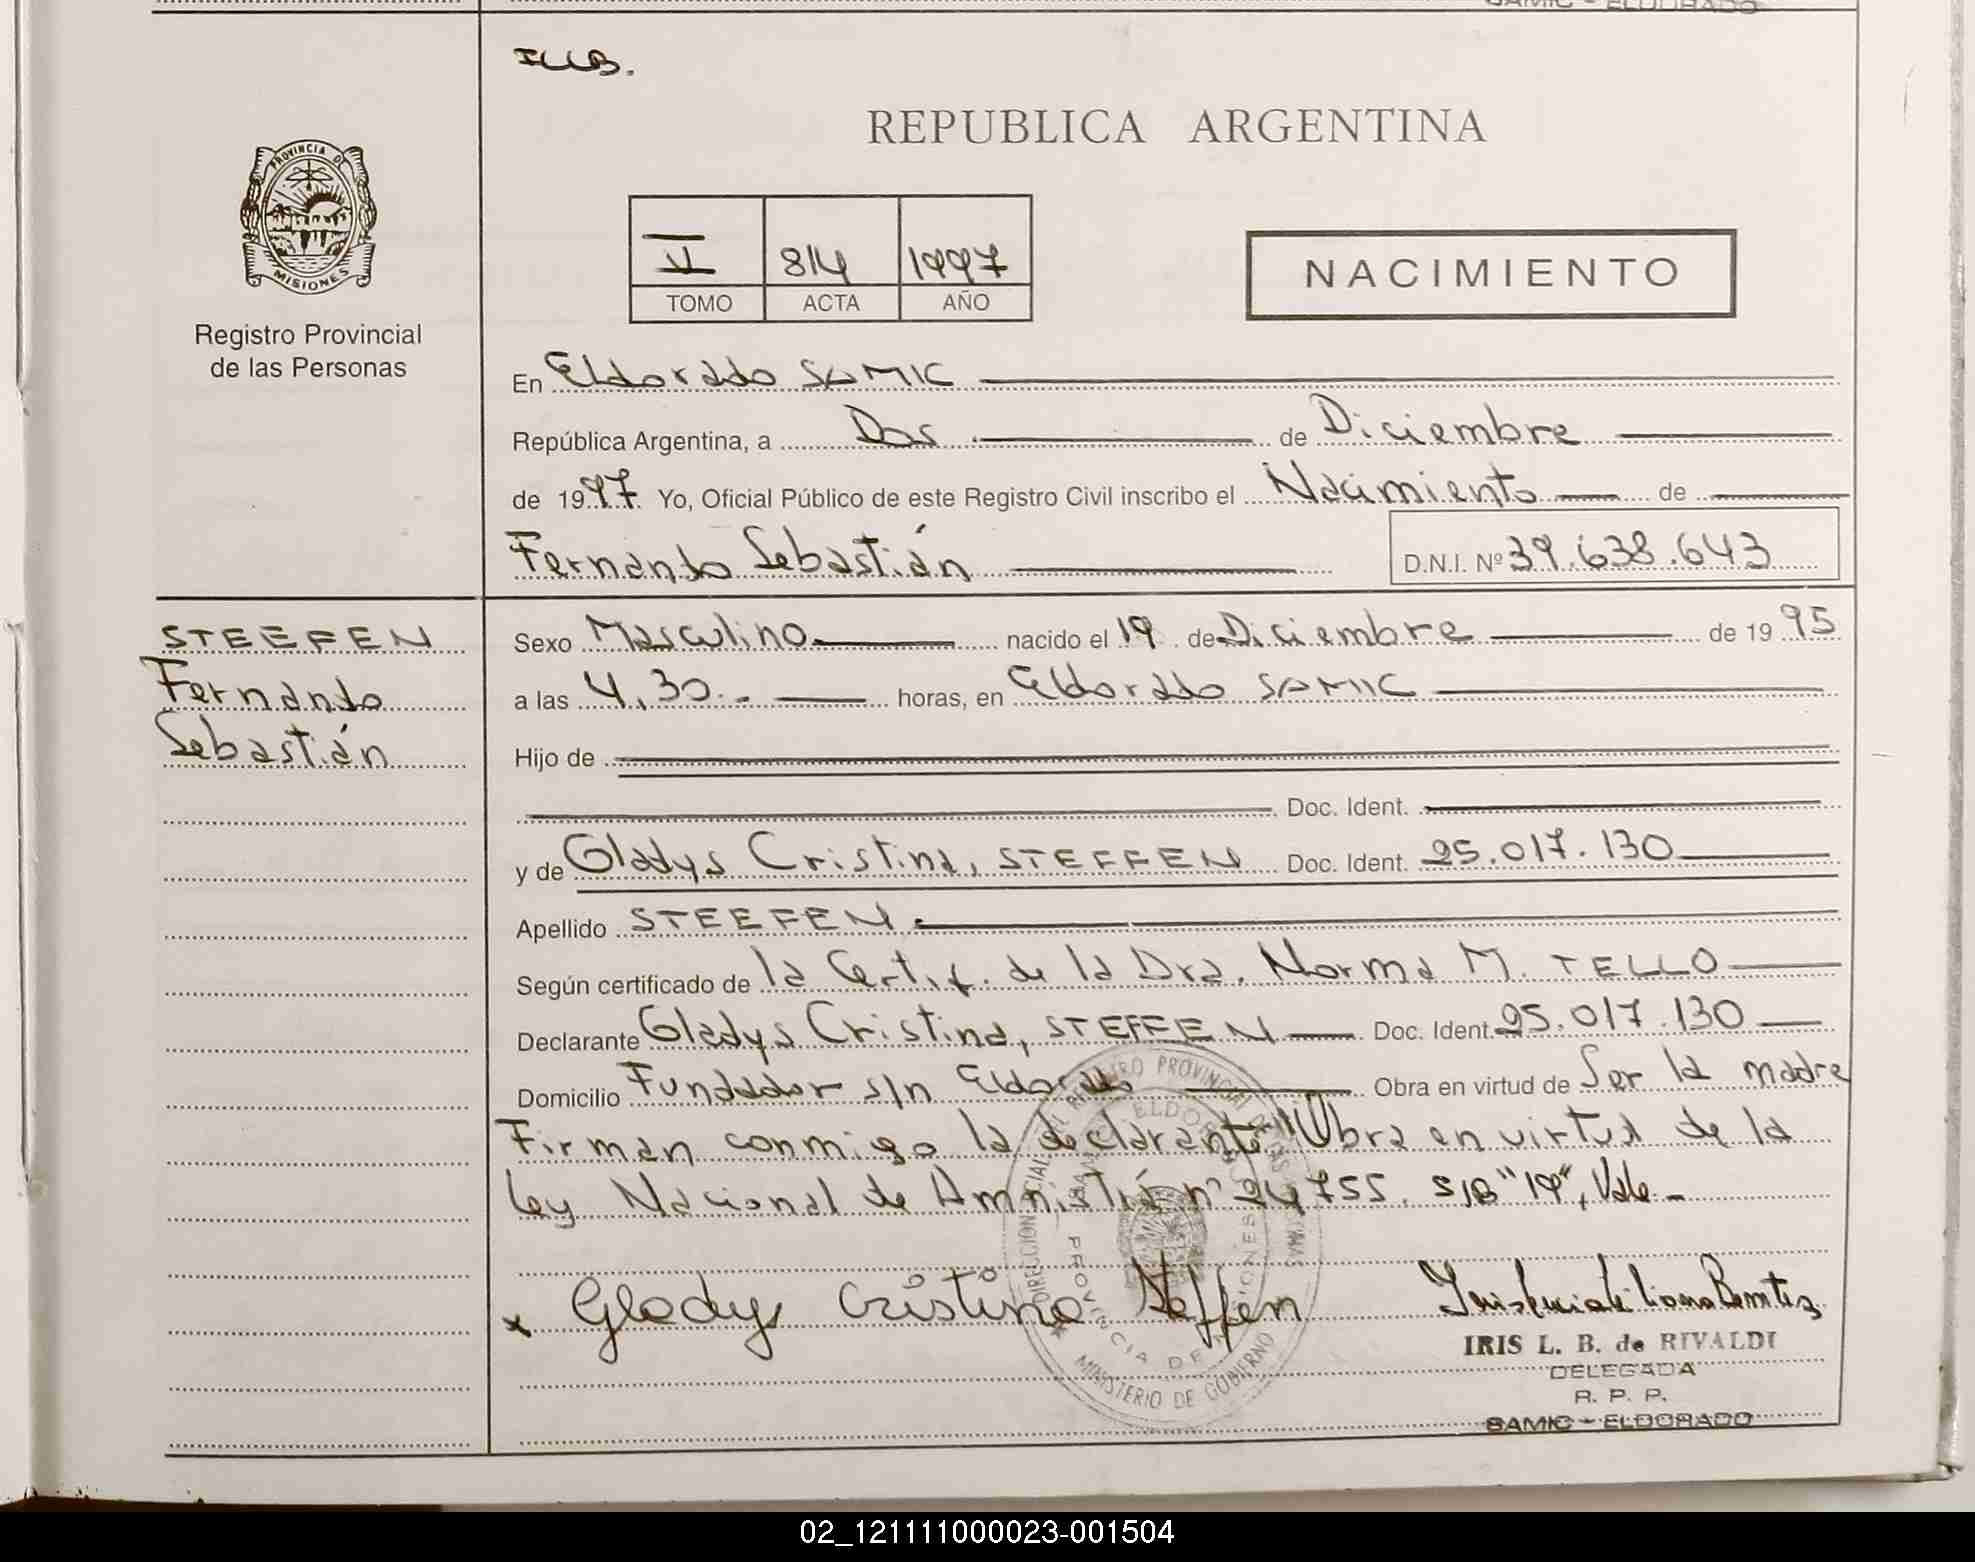 SAMIC - ELDORADO
ILLB.
REPUBLICA ARGENTINA
PROVINCIA DE
MISIONES
Registro Provincial
de las Personas
VI 814 1997
TOMO ACTA AÑO
NACIMIENTO
En Eldorado SAMIC
República Argentina, a Dos de Diciembre
de 1997 Yo, Oficial Público de este Registro Civil inscribo el Nacimiento de
Fernando Sebastián D.N.I. Nº 39.638.643
STEEFEN
Fernando
Sebastián
Sexo Masculino nacido el 19 de Diciembre de 1995
a las 4,30.- horas, en Eldorado SAMIC
Hijo de
Doc. Ident.
y de Gladys Cristina, STEFFEN Doc. Ident. 25.017.130
Apellido STEEFEN.
Según certificado de la Certif. de la Dra. Norma M. TELLO
Declarante Gladys Cristina, STEFFEN Doc. Ident. 25.017.130
Domicilio Fundador s/n Eldorado Obra en virtud de Ser la madre
Firman conmigo la declarante "Obra en virtud de la
Ley Nacional de Amnistía nº 24755. S/B "19", Vale.-
x Gladys Cristina Steffen
IRIS L. B. de RIVALDI
DELEGADA
R. P. P.
SAMIC - ELDORADO
MINISTERIO DE GOBIERNO
02_121111000023-001504